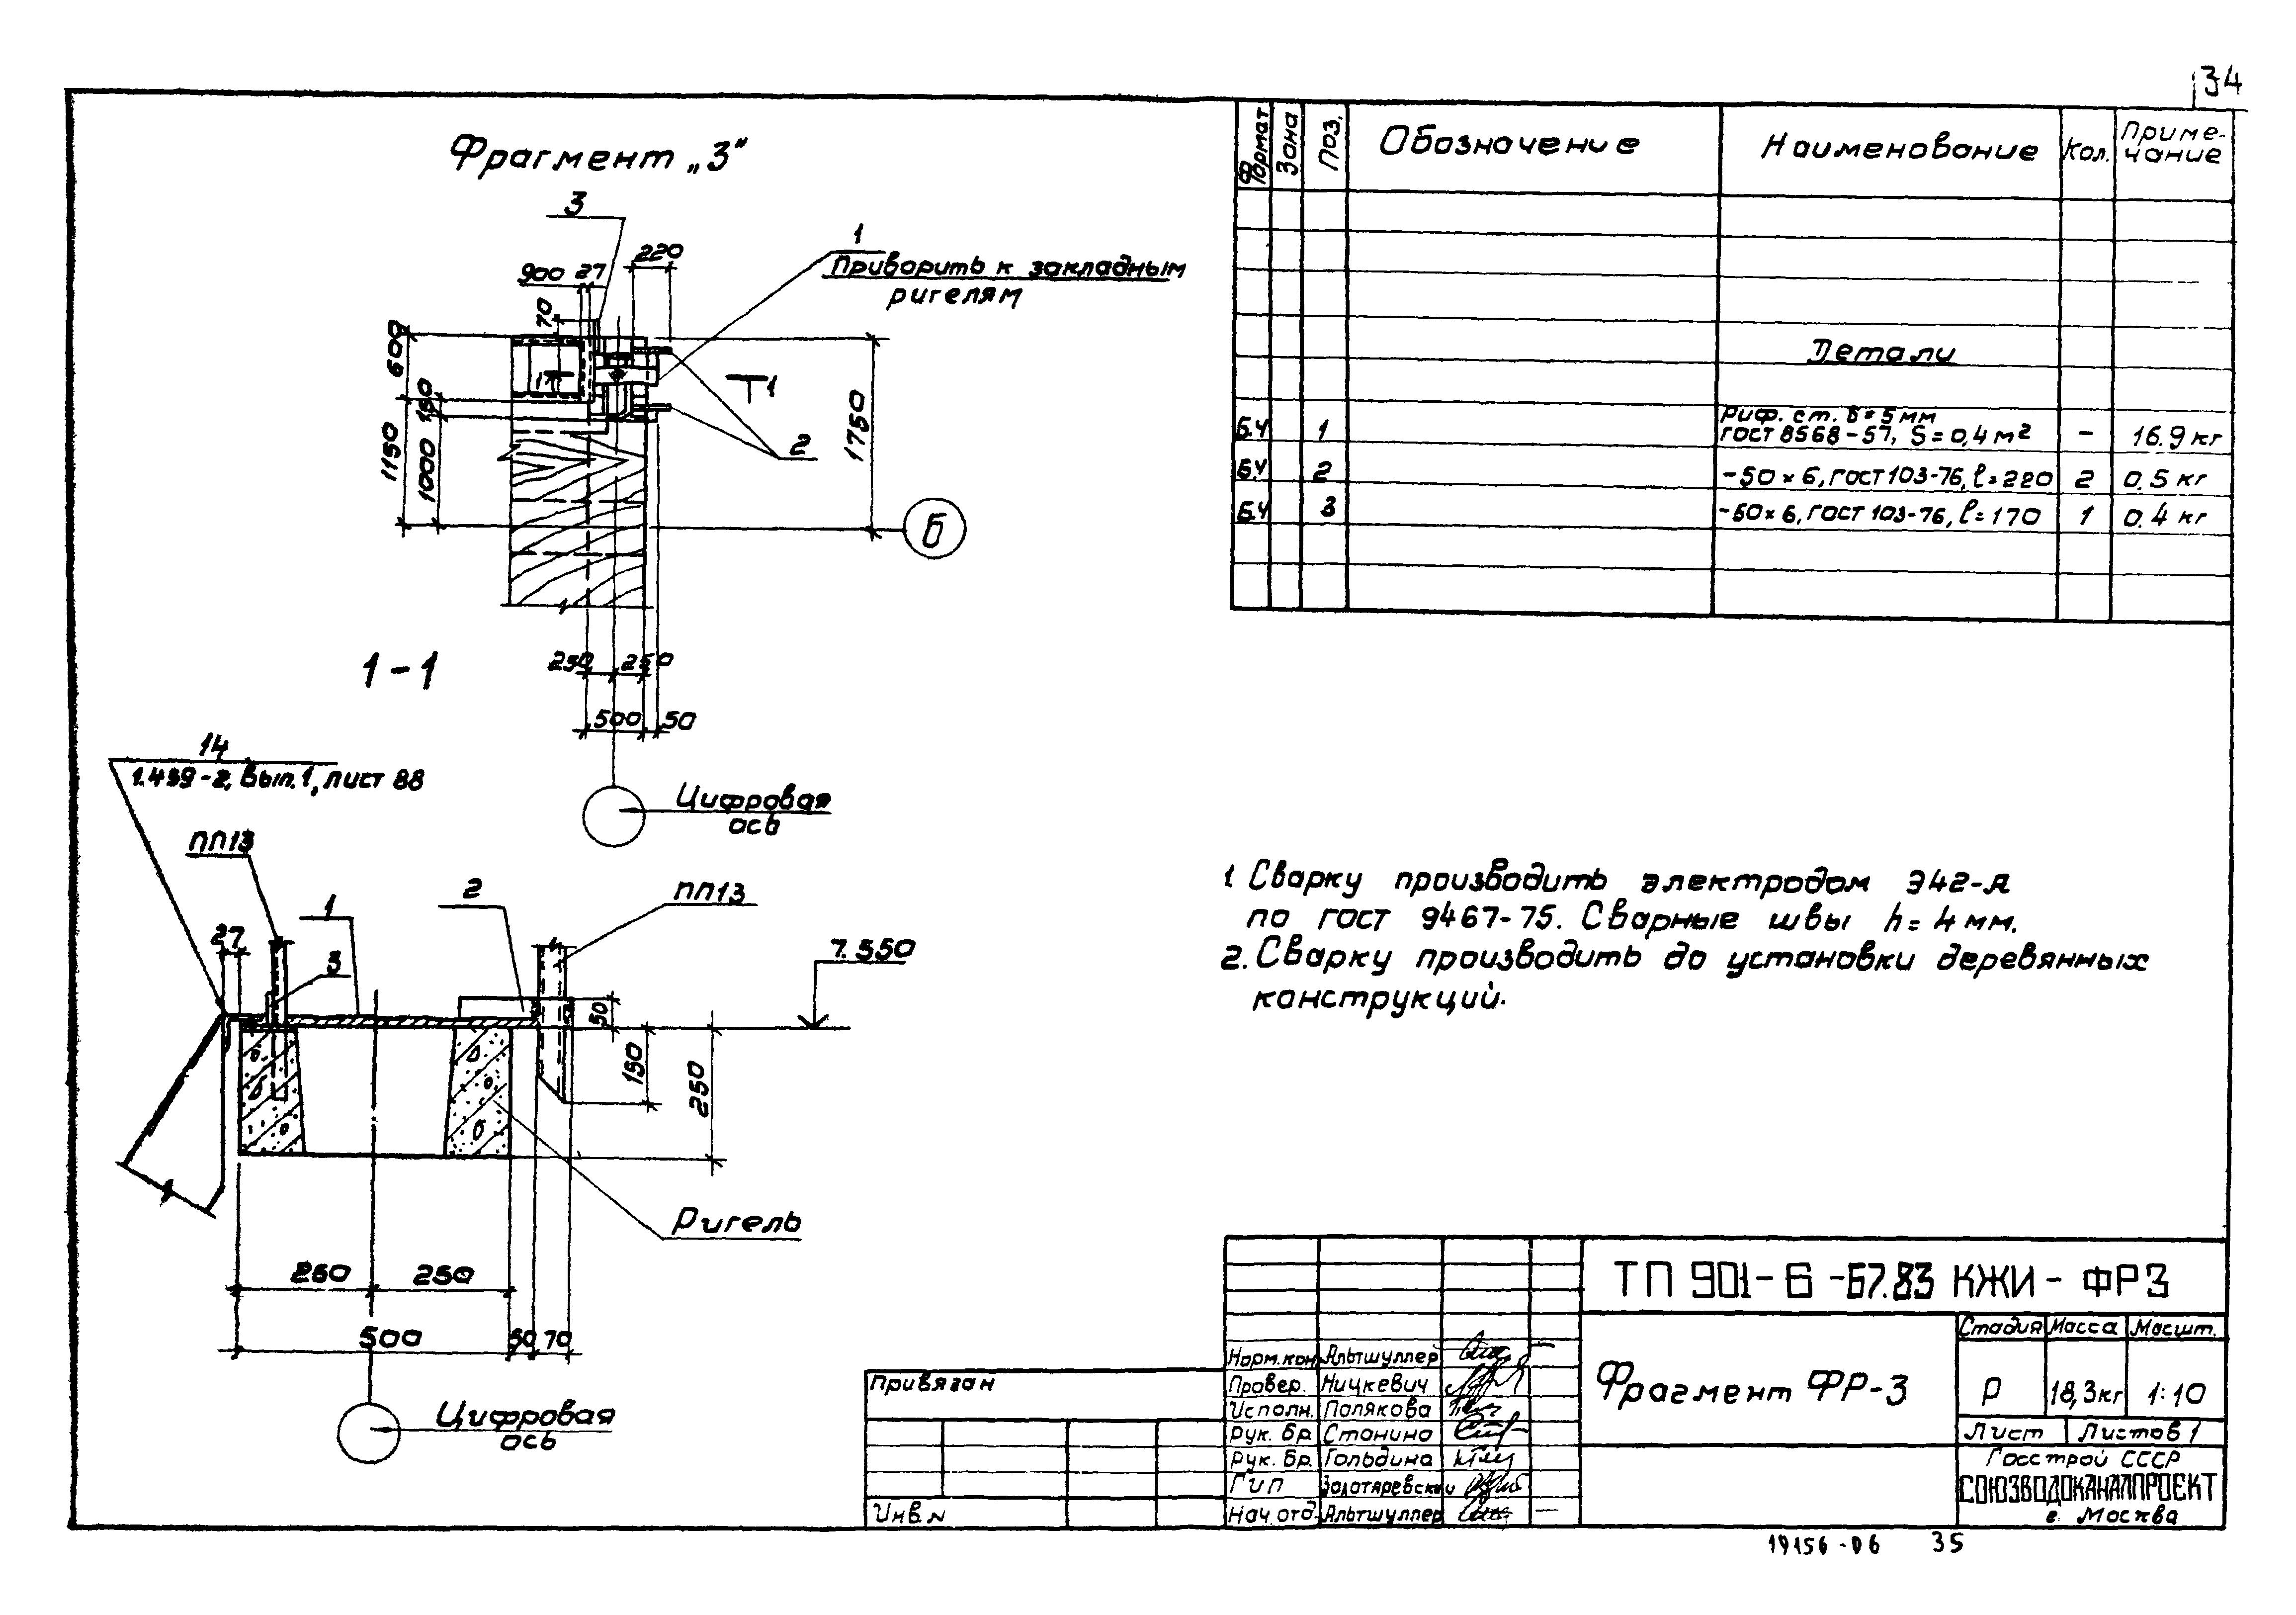 34
Фрагмент „3"
3
1
Приворить к закладным
ригелям
220
900 27
70
600
150
1150
1000
1750
1
1
2
Б
250 250
500 50
Цифровая
ось
1-1
14
1.439-2, Вып.1, лист 88
ПП13
1
2
ПП13
27
3
7.550
50
150
250
Ригель
250 250
500 50 70
Цифровая
ось
Формат Зона Поз. Обозначение Наименование Кол. Приме-
чание
Детали
Риф. ст. δ=5мм
Б.Ч 1 ГОСТ 8568-57, S=0,4м² - 16.9 кг
Б.Ч 2 -50×6, ГОСТ 103-76, ℓ=220 2 0.5 кг
Б.Ч 3 -50×6, ГОСТ 103-76, ℓ=170 1 0.4 кг
1. Сварку производить электродом Э42-А
по ГОСТ 9467-75. Сварные швы h=4мм.
2. Сварку производить до установки деревянных
конструкций.
ТП 901-6-67.83 КЖИ-ФР3
Фрагмент ФР-3
Стадия Масса Масшт.
Р 18,3кг 1:10
Лист Листов 1
Госстрой СССР
СОЮЗВОДОКАНАЛПРОЕКТ
г. Москва
Норм.кон. Альтшуллер
Провер. Ницкевич
Исполн. Полякова
Рук. бр. Станина
Рук. бр. Гольдина
ГИП Золотяревский
Нач.отд. Альтшуллер
Привязан
Инв.№
19156-06 35